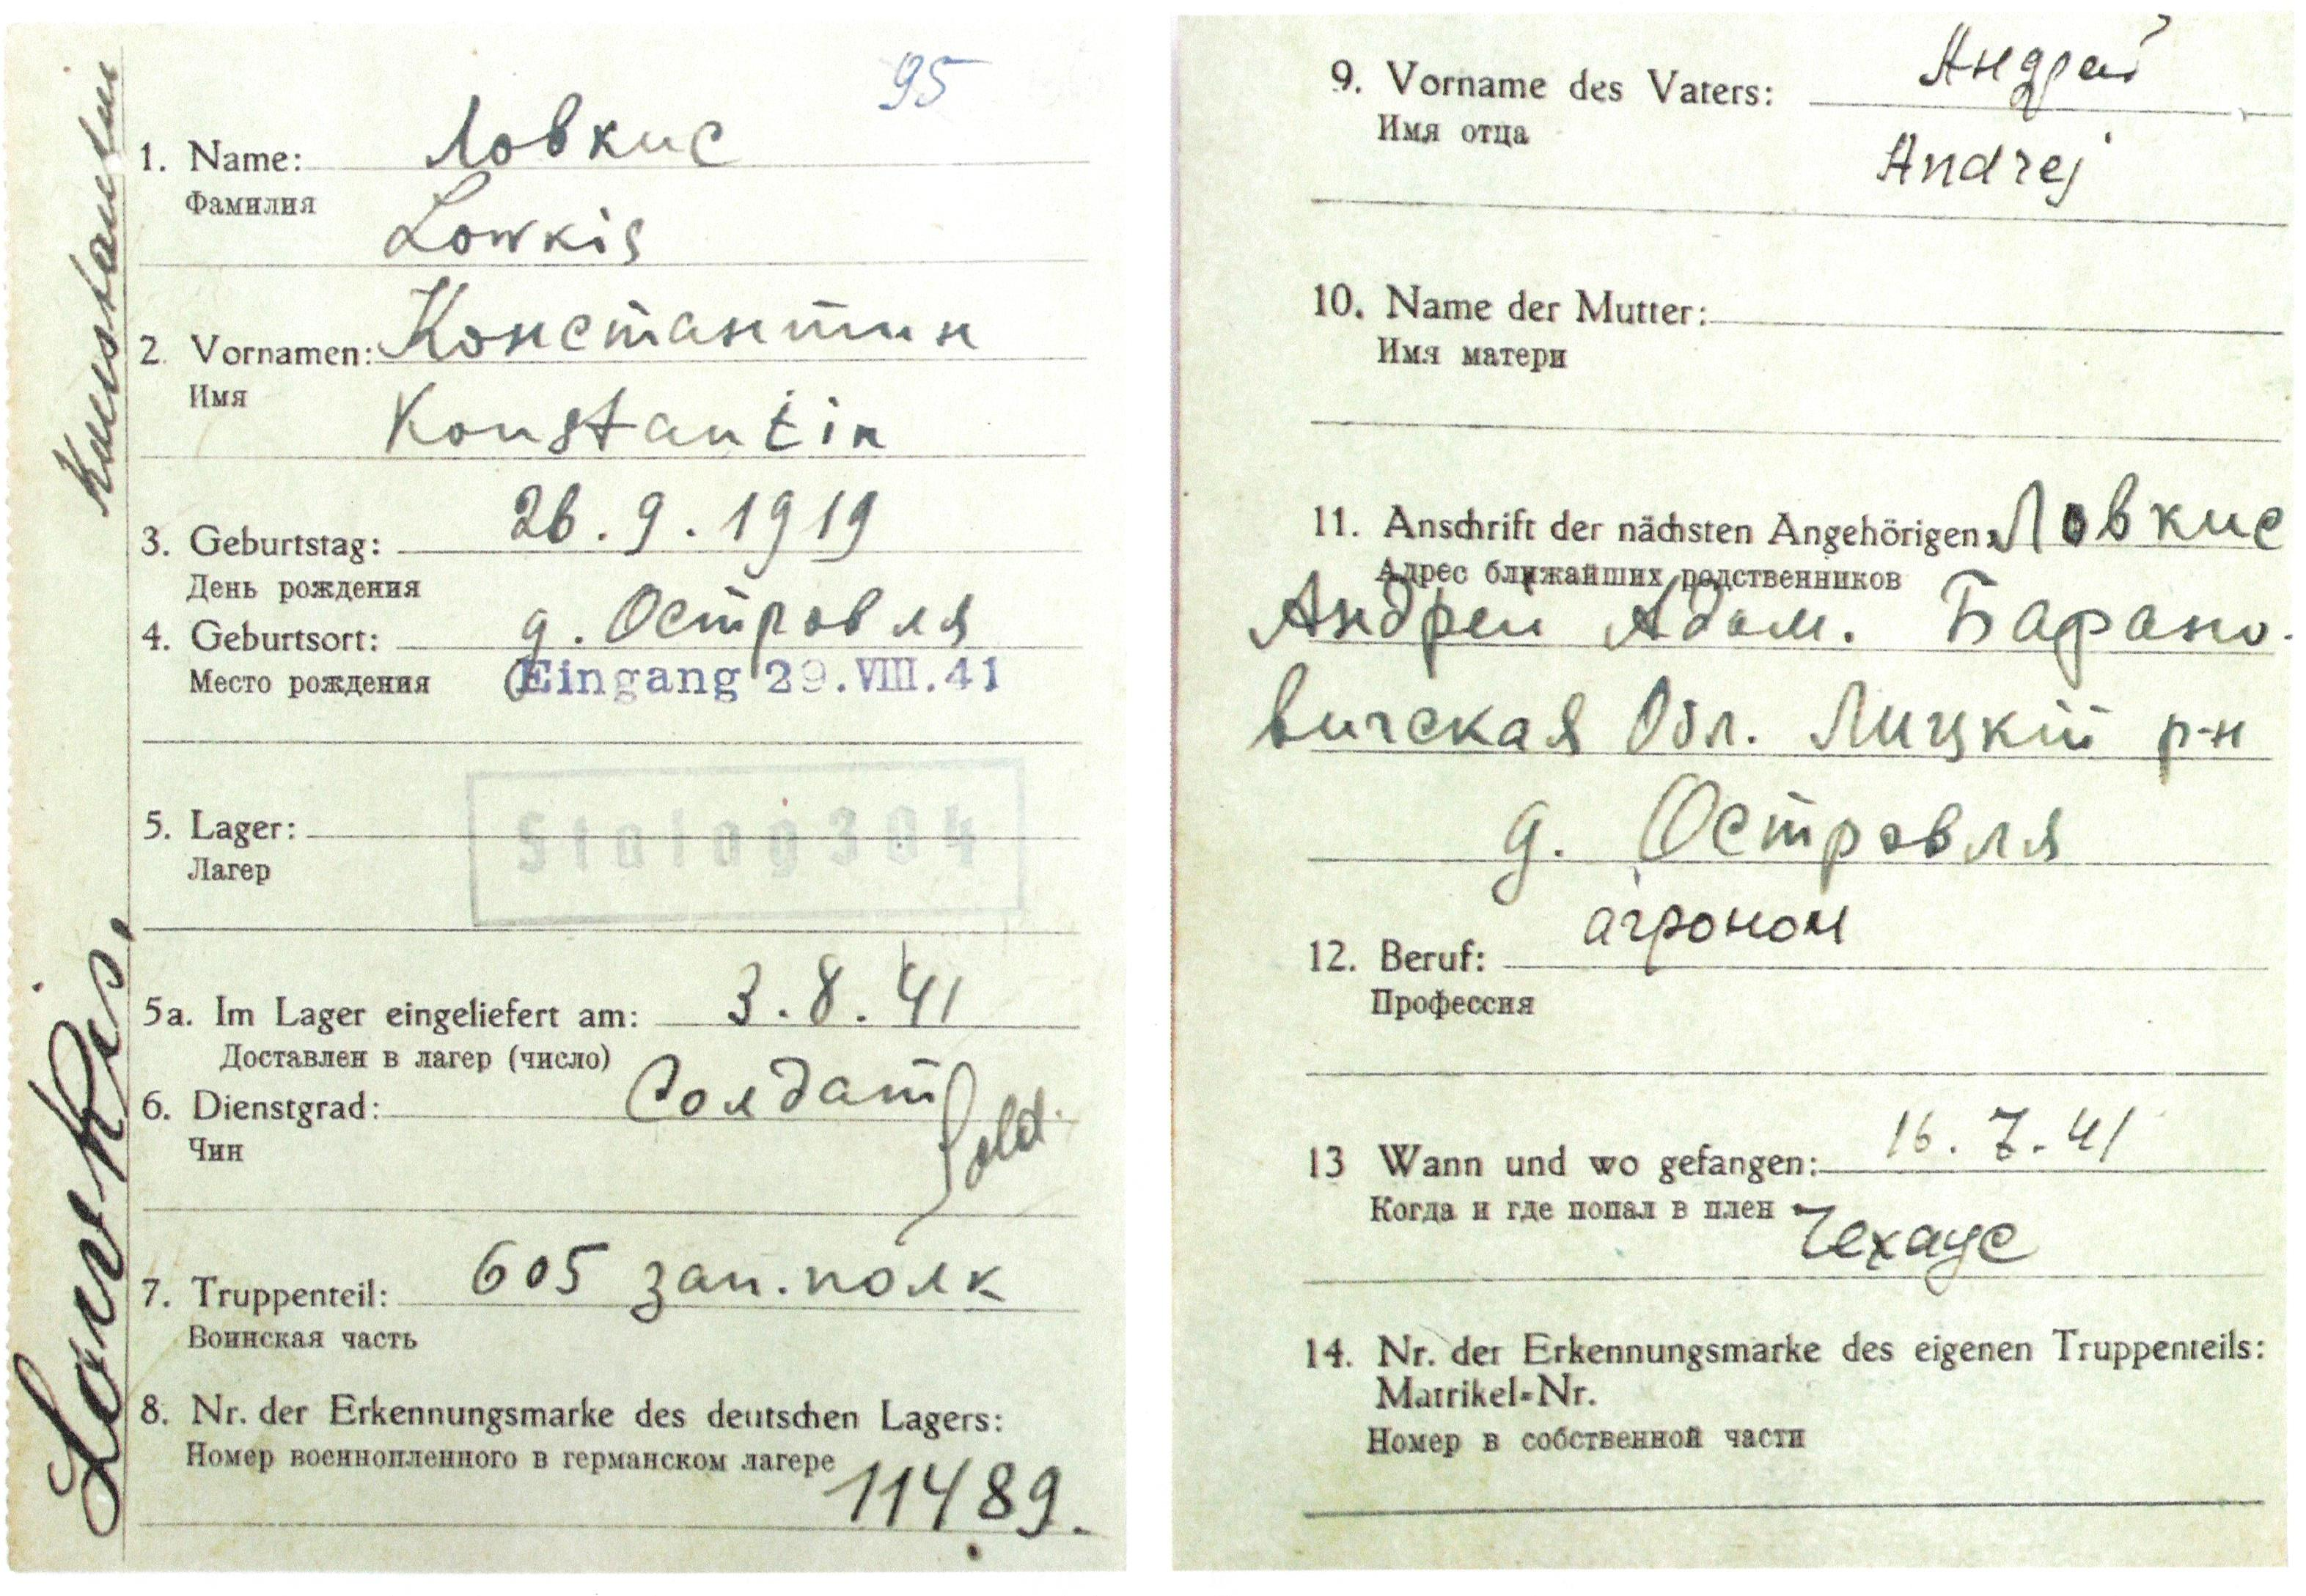 95
1. Name: Ловкис
Фамилия
Lowkis
2. Vornamen: Константин
Имя
Konstantin
3. Geburtstag: 26.9.1919
День рождения
4. Geburtsort: д. Островля
Место рождения Eingang 29.VIII.41
5. Lager: Stalag 304
Лагер
5a. Im Lager eingeliefert am: 3.8.41
Доставлен в лагер (число)
6. Dienstgrad: Солдат
Чин Sold.
7. Truppenteil: 605 зап. полк
Воинская часть
8. Nr. der Erkennungsmarke des deutschen Lagers:
Номер военнопленного в германском лагере
11489.
Lowkis, Konstantin
9. Vorname des Vaters: Андрей
Имя отца
Andrej
10. Name der Mutter:
Имя матери
11. Anschrift der nächsten Angehörigen: Ловкис
Адрес ближайших родственников
Андрей Адам. Барано-
вичская Обл. Лидкий р-н
д. Островля
агроном
12. Beruf:
Профессия
13 Wann und wo gefangen: 16.7.41
Когда и где попал в плен
Чехаус
14. Nr. der Erkennungsmarke des eigenen Truppenteils:
Matrikel-Nr.
Номер в собственной части